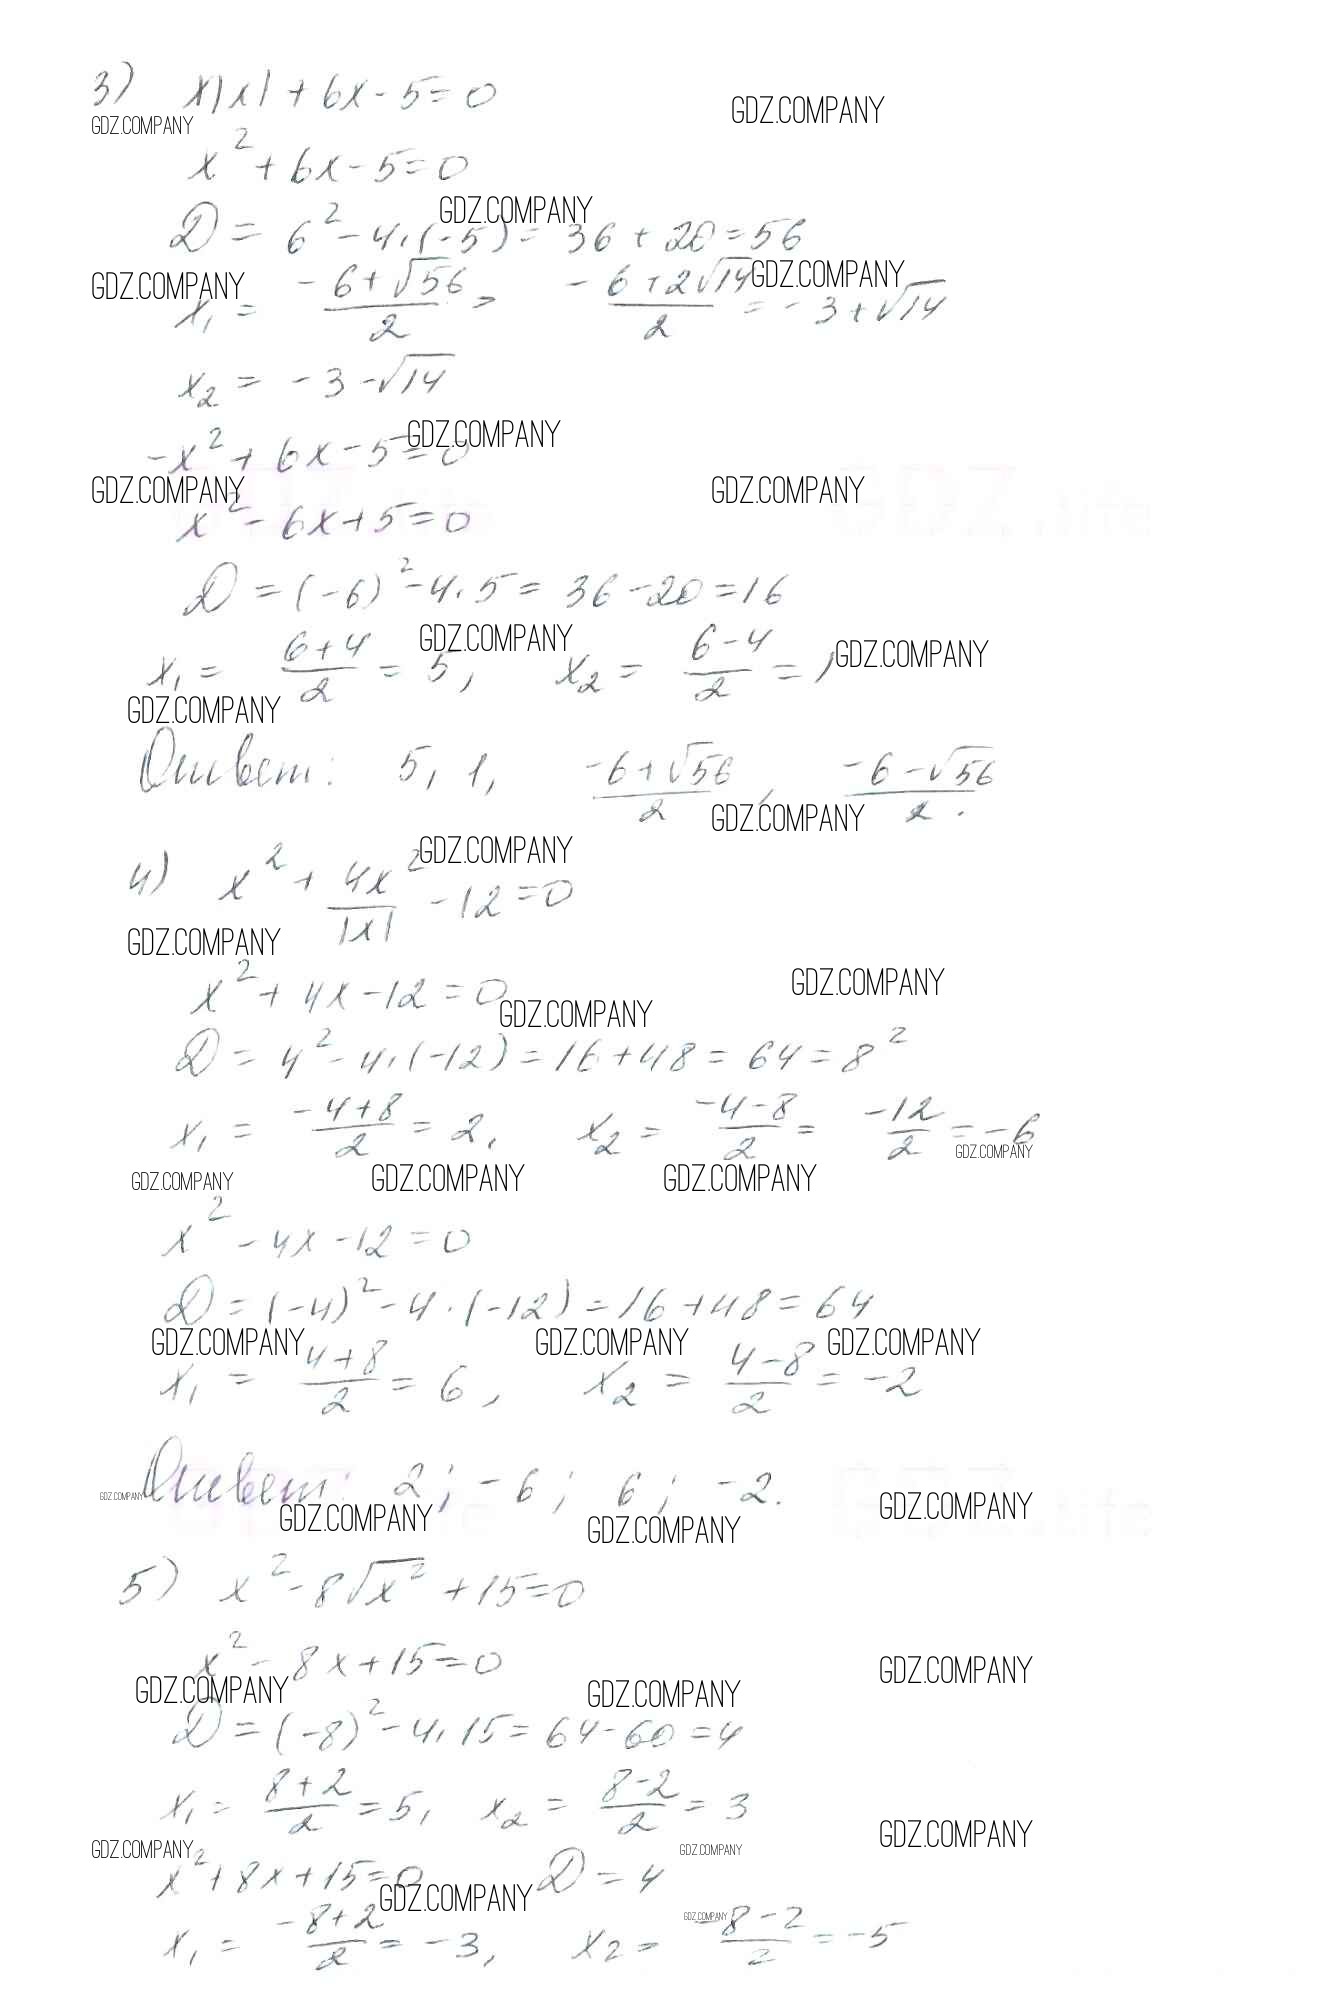 3) x|x| + 6x - 5 = 0
GDZ.COMPANY GDZ.COMPANY
x² + 6x - 5 = 0
GDZ.COMPANY
D = 6² - 4·(-5) = 36 + 20 = 56
GDZ.COMPANY GDZ.COMPANY
x₁ = (-6+√56)/2 = (-6+2√14)/2 = -3+√14
x₂ = -3-√14
GDZ.COMPANY
-x² + 6x - 5 = 0
GDZ.COMPANY GDZ.COMPANY
GDZ.life GDZ.life
x² - 6x + 5 = 0
D = (-6)² - 4·5 = 36 - 20 = 16
GDZ.COMPANY GDZ.COMPANY
x₁ = (6+4)/2 = 5, x₂ = (6-4)/2 = 1
GDZ.COMPANY
Ответ: 5, 1, (-6+√56)/2, (-6-√56)/2.
GDZ.COMPANY
GDZ.COMPANY
4) x² + 4x²/|x| - 12 = 0
GDZ.COMPANY
GDZ.COMPANY
x² + 4x - 12 = 0
GDZ.COMPANY
D = 4² - 4·(-12) = 16 + 48 = 64 = 8²
x₁ = (-4+8)/2 = 2, x₂ = (-4-8)/2 = -12/2 = -6
GDZ.COMPANY
GDZ.COMPANY GDZ.COMPANY GDZ.COMPANY
x² - 4x - 12 = 0
D = (-4)² - 4·(-12) = 16 + 48 = 64
GDZ.COMPANY GDZ.COMPANY GDZ.COMPANY
x₁ = (4+8)/2 = 6, x₂ = (4-8)/2 = -2
GDZ.COMPANY
Ответ: 2; -6; 6; -2.
GDZ.COMPANY GDZ.COMPANY GDZ.COMPANY
GDZ.life GDZ.life
5) x² - 8√x² + 15 = 0
x² - 8x + 15 = 0
GDZ.COMPANY GDZ.COMPANY GDZ.COMPANY
D = (-8)² - 4·15 = 64 - 60 = 4
x₁ = (8+2)/2 = 5, x₂ = (8-2)/2 = 3
GDZ.COMPANY GDZ.COMPANY GDZ.COMPANY
x² + 8x + 15 = 0 D = 4
GDZ.COMPANY GDZ.COMPANY
x₁ = (-8+2)/2 = -3, x₂ = (-8-2)/2 = -5